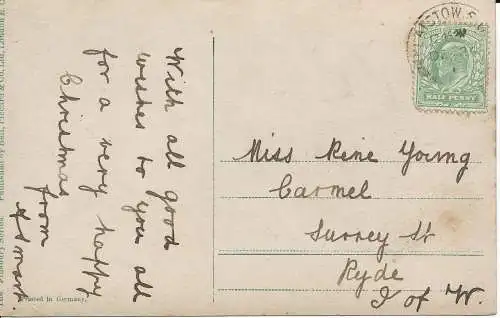 With all good
wishes to you all
for a very happy
Christmas
from
A Smart.
Miss Rene Young
Carmel
Surrey St
Ryde
I of W.
HALF PENNY
Printed in Germany.